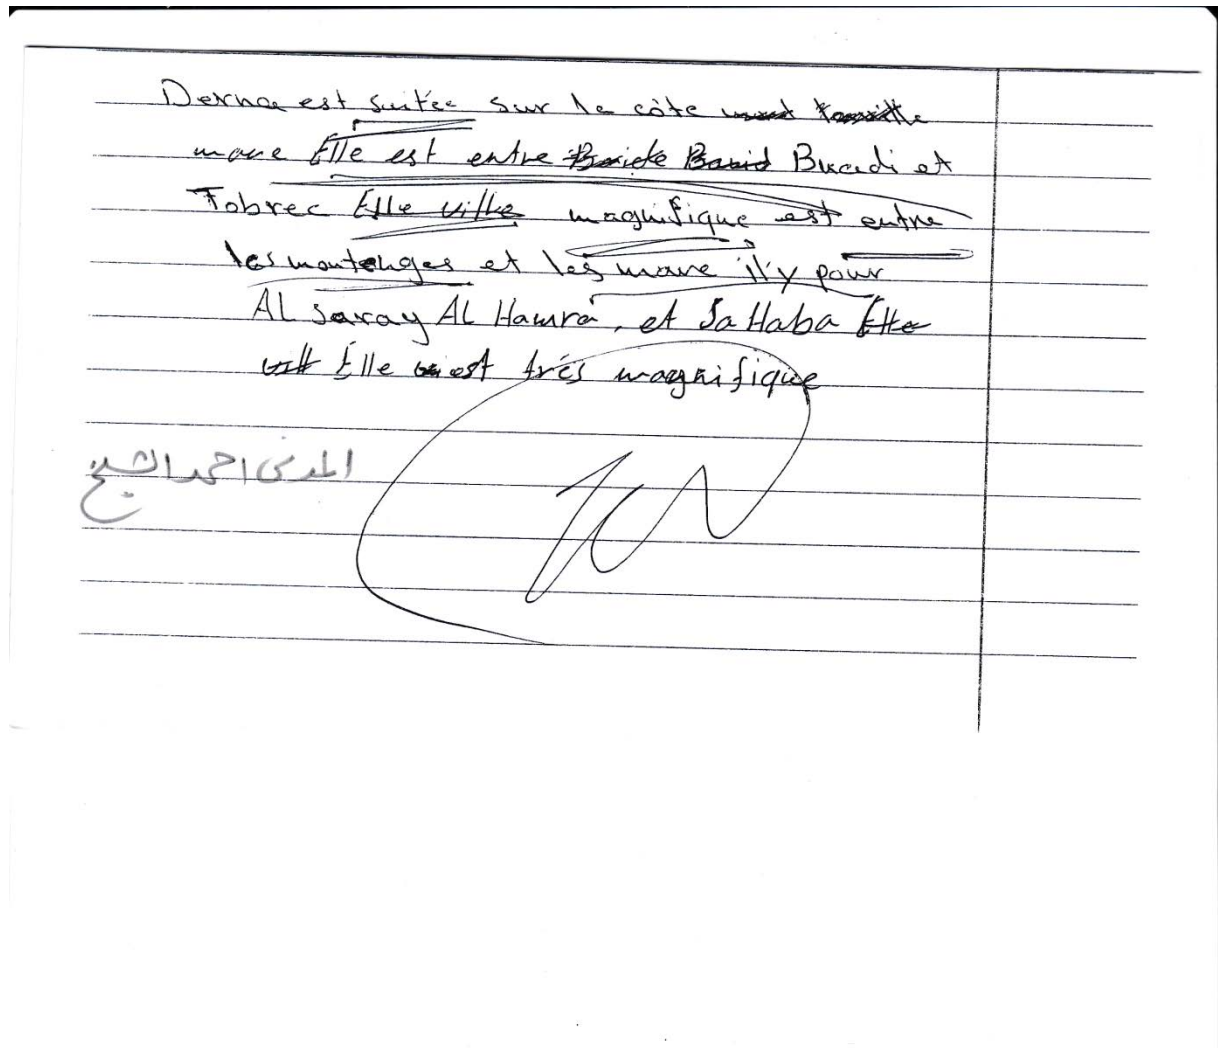 Derna est suitée sur la côte
mare Elle est entre Bucadi et
Tobrec Elle ville magnifique est entre
les montenges et les mare il'y pour
AL Saray AL Hamra, et SaHaba Elle
Elle est trés magnifique
المدني احمد الشيخ